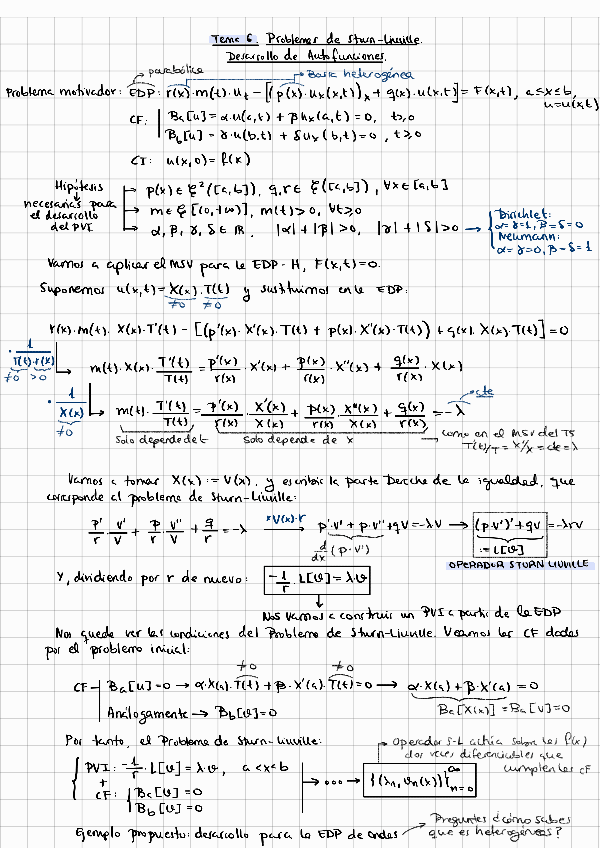 Tema 6. Problemas de Sturn-Liuville.
Desarrollo de Autofunciones.
parabólica
Barra heterogénea
Problema motivador: EDP: r(x)·m(t)·u_t - [(p(x)·u_x(x,t))_x + q(x)·u(x,t)] = F(x,t), a≤x≤b,
u=u(x,t)
CF: B_a[u] = α·u(a,t) + β u_x(a,t) = 0, t≥0
B_b[u] = γ·u(b,t) + δ u_x(b,t) = 0, t≥0
CI: u(x,0) = f(x)
Hipótesis → p(x) ∈ ξ²([a,b]), q, r ∈ ξ([a,b]), ∀x∈[a,b]
necesarias para → m ∈ ξ([0,+∞)), m(t)>0, ∀t≥0
el desarrollo → α, β, γ, δ ∈ ℝ, |α|+|β|>0, |γ|+|δ|>0 →
del PVI
Dirichlet:
α=γ=1, β=δ=0
Neumann:
α=γ=0, β=δ=1
Vamos a aplicar el MSV para la EDP-H, F(x,t)=0.
Suponemos u(x,t) = X(x)·T(t) y sustituimos en la EDP:
≠0 ≠0
r(x)·m(t)·X(x)·T'(t) - [(p'(x)·X'(x)·T(t) + p(x)·X''(x)·T(t)) + q(x)·X(x)·T(t)] = 0
· 1/(T(t)·r(x))
≠0 >0
m(t)·X(x)·T'(t)/T(t) = p'(x)/r(x)·X'(x) + p(x)/r(x)·X''(x) + q(x)/r(x)·X(x)
· 1/X(x)
≠0
cte
m(t)·T'(t)/T(t) = p'(x)/r(x)·X'(x)/X(x) + p(x)/r(x)·X''(x)/X(x) + q(x)/r(x) = -λ
Solo depende de t Solo depende de x
como en el MSV del T5
T'(t)/T = X''/X = cte = λ
Vamos a tomar X(x) := V(x), y escribir la parte Derecha de la igualdad, que
corresponde al problema de Sturn-Liuville:
p'/r·v'/v + p/r·v''/v + q/r = -λ ×V(x)·r → p'·v' + p·v'' + qv = -λrv → (p·v')' + qv = -λrv
d/dx (p·v')
:= L[v]
OPERADOR STURN LIUVILLE
Y, dividiendo por r de nuevo: -1/r·L[v] = λ·v
Nos vamos a construir un PVI a partir de la EDP
Nos queda ver las condiciones del Problema de Sturn-Liuville. Veamos las CF dadas
por el problema inicial:
≠0 ≠0
CF B_a[u]=0 → α·X(a)·T(t) + β·X'(a)·T(t) = 0 → α·X(a) + β·X'(a) = 0
B_a[X(x)] = B_a[v] = 0
Análogamente → B_b[v]=0
Por tanto, el Problema de Sturn-Liuville:
Operador S-L actúa sobre las f(x)
dos veces diferenciables que
cumplen las CF
PVI: -1/r·L[v] = λ·v, a<x<b
+
CF: B_a[v]=0
B_b[v]=0
→ ∘∘∘ → {(λ_n, v_n(x))}_{n=0}^∞
Ejemplo propuesto: desarrollo para la EDP de ondas
Preguntas ¿cómo sabes
que es heterogénea?